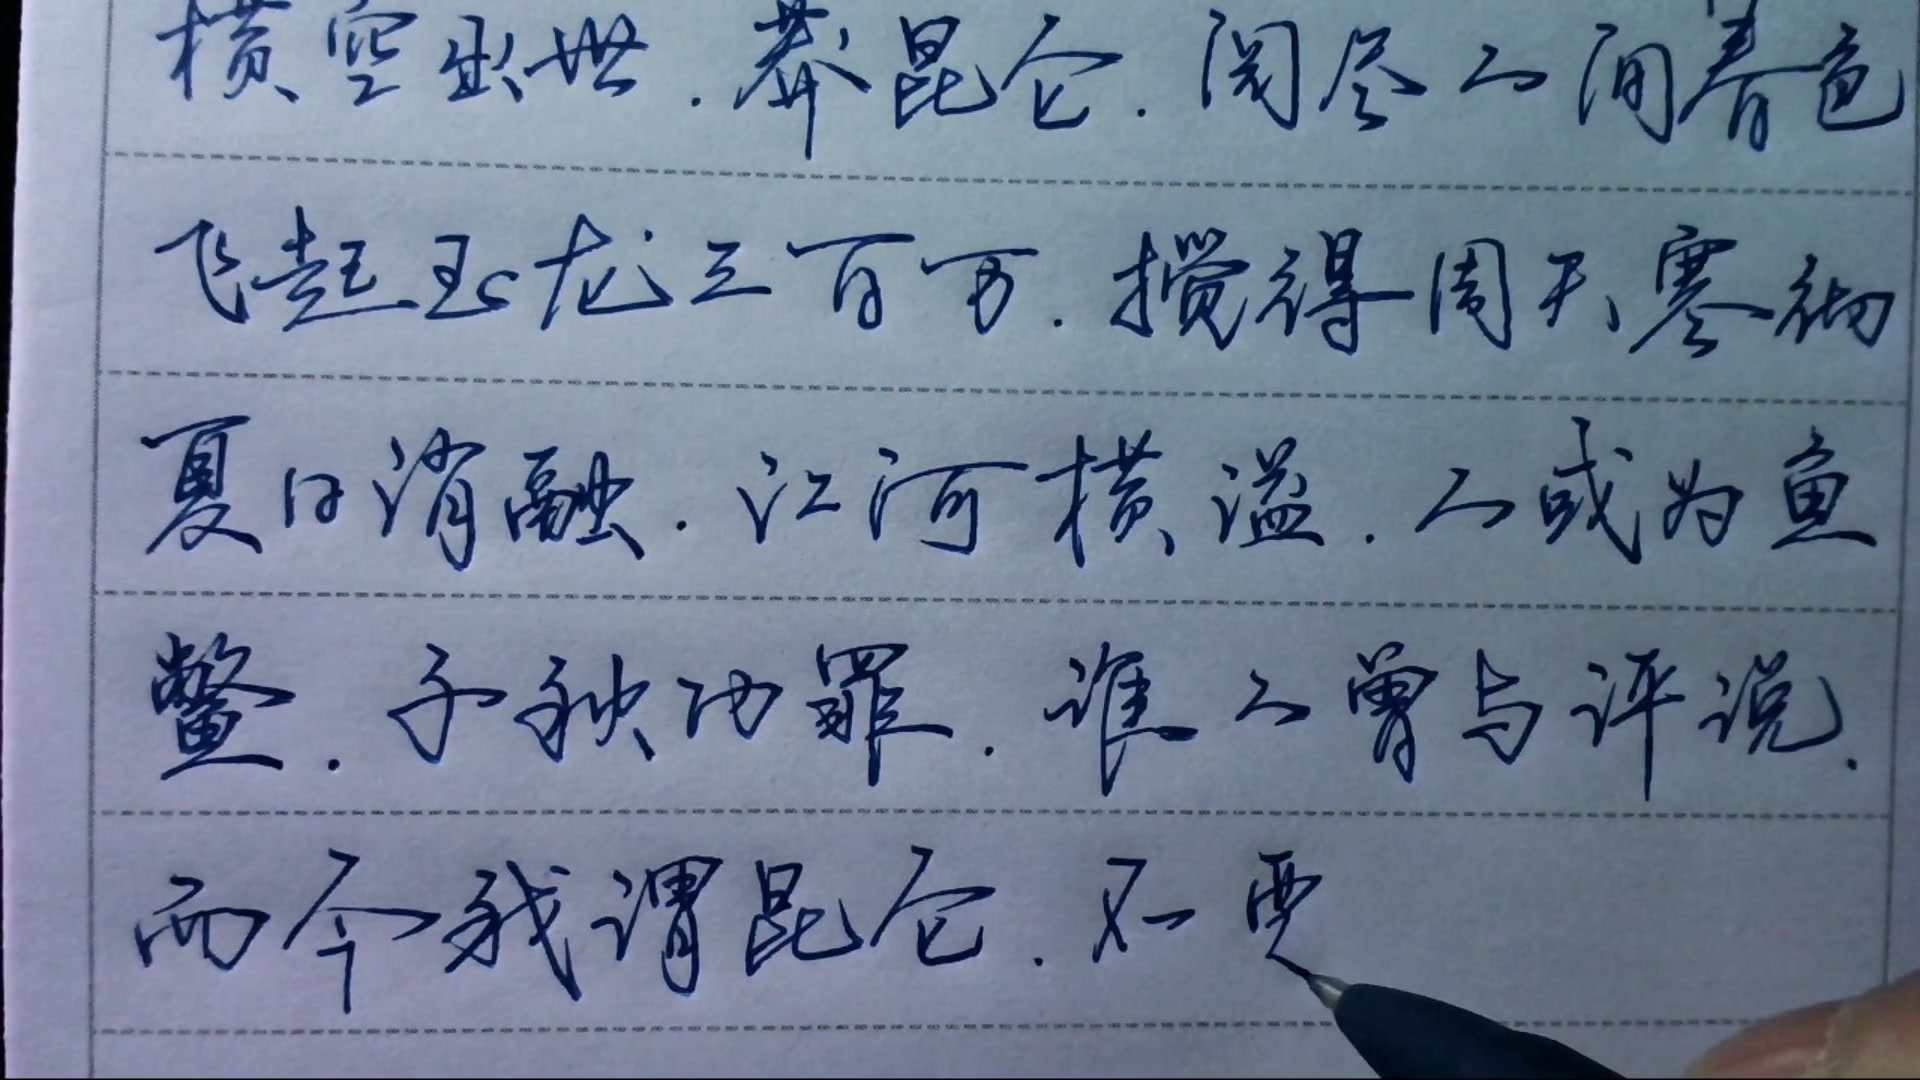 横空出世.莽昆仑.阅尽人间春色
飞起玉龙三百万.搅得周天寒彻
夏日消融.江河横溢.人或为鱼
鳖.千秋功罪.谁人曾与评说.
而今我谓昆仑.不要